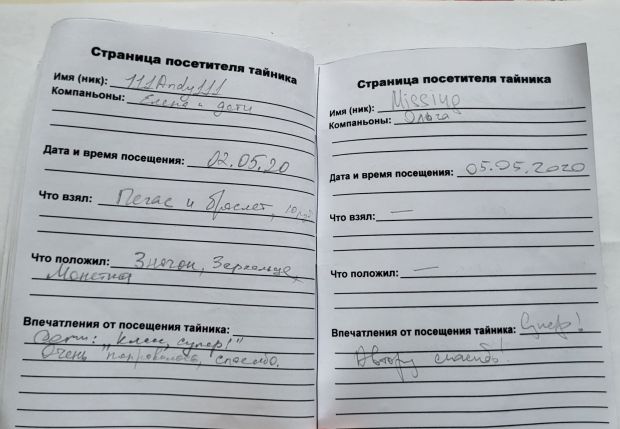 Страница посетителя тайника
Имя (ник): 111Andy111
Компаньоны: Елена и дети
Дата и время посещения: 02.05.20
Что взял: Пегас и браслет,
Что положил: Значок, Зеркальце,
Монетка
Впечатления от посещения тайника:
Дети: "Класс, супер!"
Очень понравилось, спасибо.
Страница посетителя тайника
Имя (ник): Missing
Компаньоны: Ольга
Дата и время посещения: 05.05.2020
Что взял: —
Что положил: —
Впечатления от посещения тайника: Супер!
Автору спасибо!